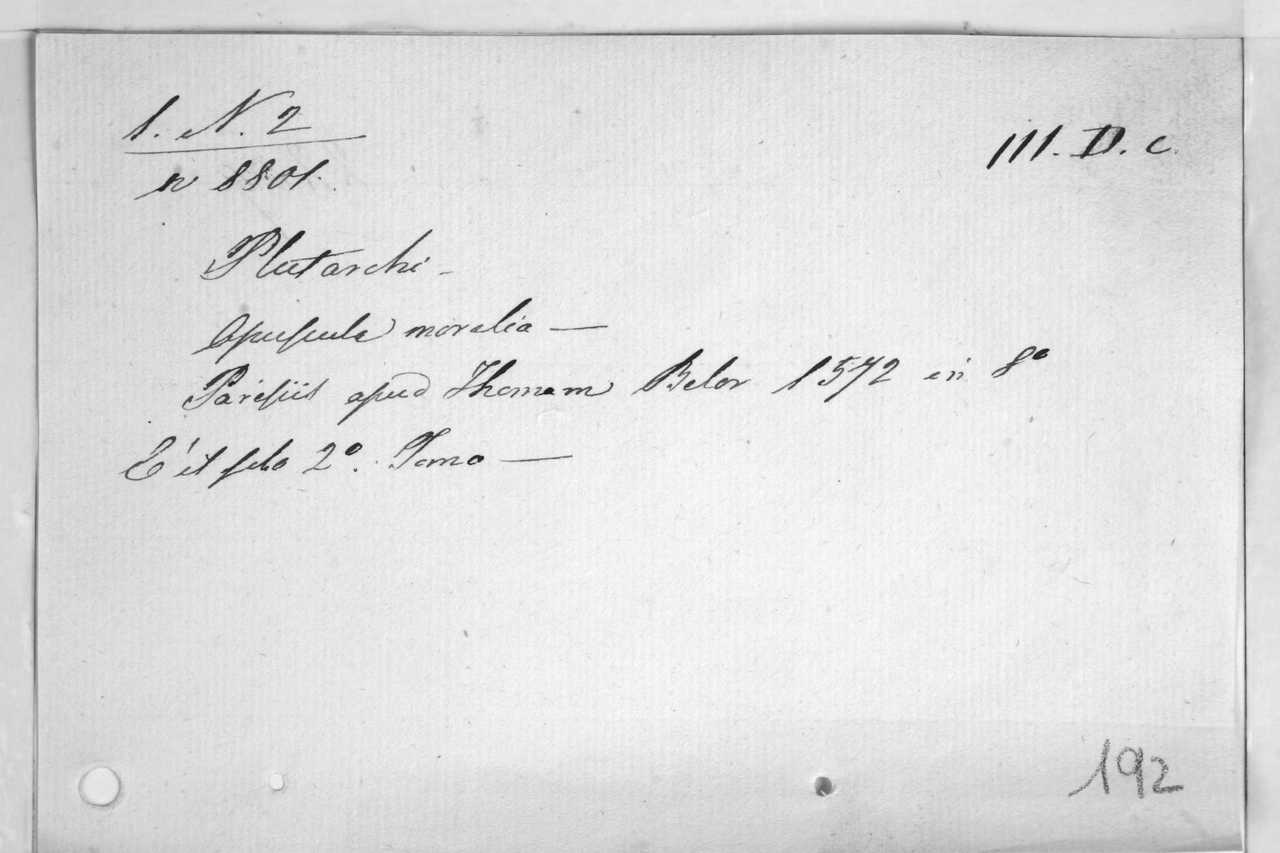 1. N. 2
III. D. c.
n 8801.
Plutarchi -
Opuscula moralia —
Parisiis apud Thomam Belor 1572 in 8º
E' il solo 2º. Tomo —
192